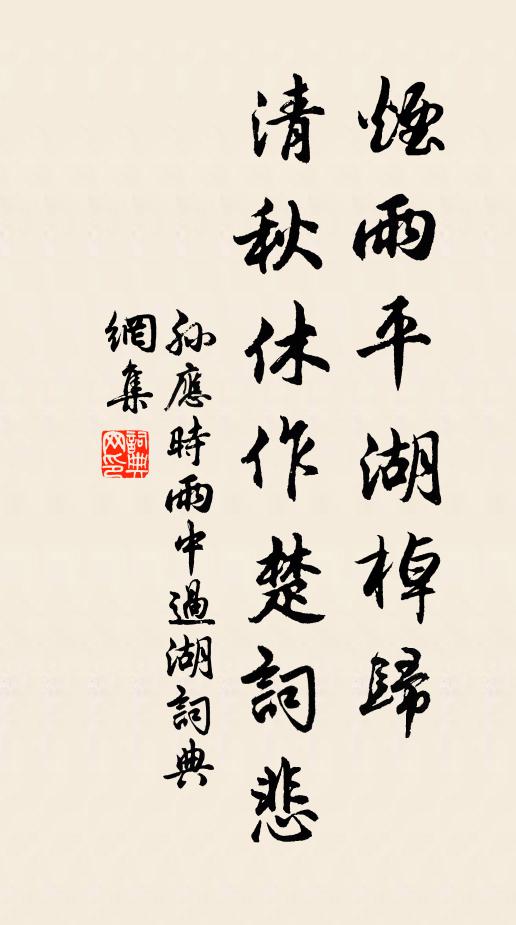 煙雨平湖棹歸
清秋休作楚詞悲
孫應時雨中過湖詞典
網集
詞典
网印